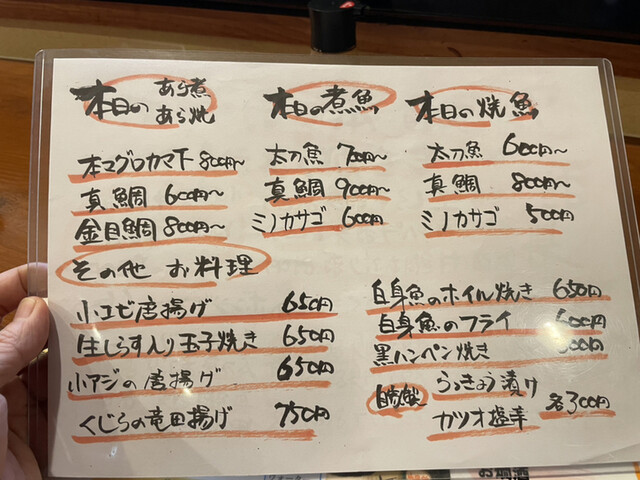 本日の あら煮
あら焼
本マグロカマ下 800円〜
真鯛 600円〜
金目鯛 800円〜
本日の煮魚
太刀魚 700円〜
真鯛 900円〜
ミノカサゴ 600円
本日の焼魚
太刀魚 600円〜
真鯛 800円〜
ミノカサゴ 500円
その他 お料理
小エビ唐揚げ 650円
生しらす入り玉子焼き 650円
小アジの唐揚げ 650円
くじらの竜田揚げ 750円
白身魚のホイル焼き 650円
白身魚のフライ 600円
黒ハンペン焼き 300円
自家製 らっきょう漬け
カツオ塩辛 各300円